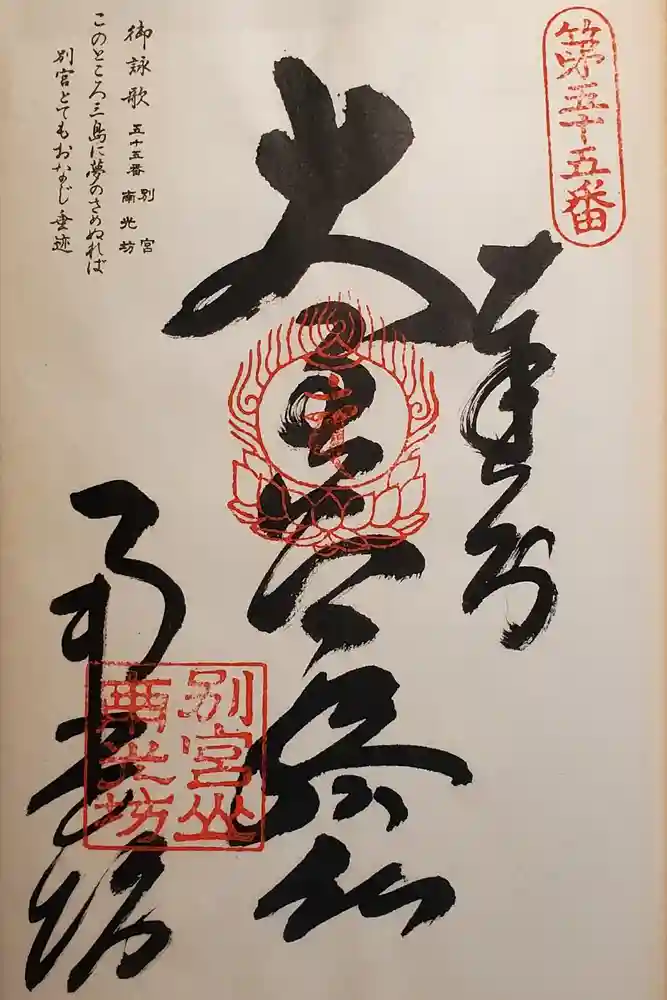 第五十五番
奉納
大通智勝仏
南光坊
別宮山
南光坊
御詠歌 五十五番 別宮 南光坊
このところ三島に夢のさめぬれば
別宮とてもおなじ垂迹